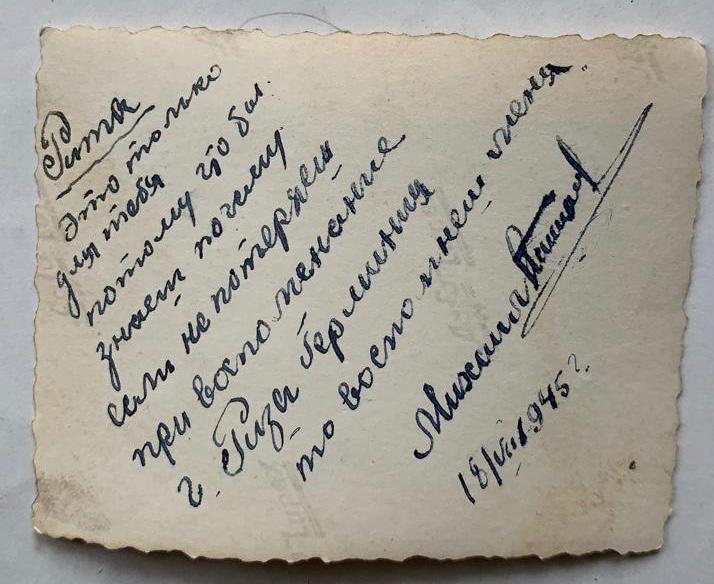 Рита
Это только
для тебя
потому что бы.
знаеш почему
если не потеряеш
при воспоменание
г. Риза Германия
то воспомнеш меня.
Михаил
18/VIII 1945 г.